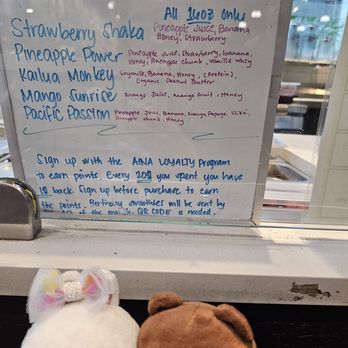 All 16oz only
Strawberry Shaka Pineapple Juice, Banana
Honey, Strawberry
Pineapple Power Pineapple Juice, Strawberry, Banana,
Honey, Pineapple Chunk, Vanilla Whey
Kailua Monkey Soymilk, Banana, Honey, (Protein),
Organic Peanut Butter
Mango Sunrise Mango Juice, Mango Fruit, Honey
Pacific Passion Pineapple Juice, Banana, Mango Papaya,
Pineapple chunk, Honey
Sign up with the ALOHA LOYALTY program
to earn points. Every 20$ you spent you have
1$ back. Sign up before purchase to earn
the points. Birthday smoothies will be sent by
QR CODE is needed.